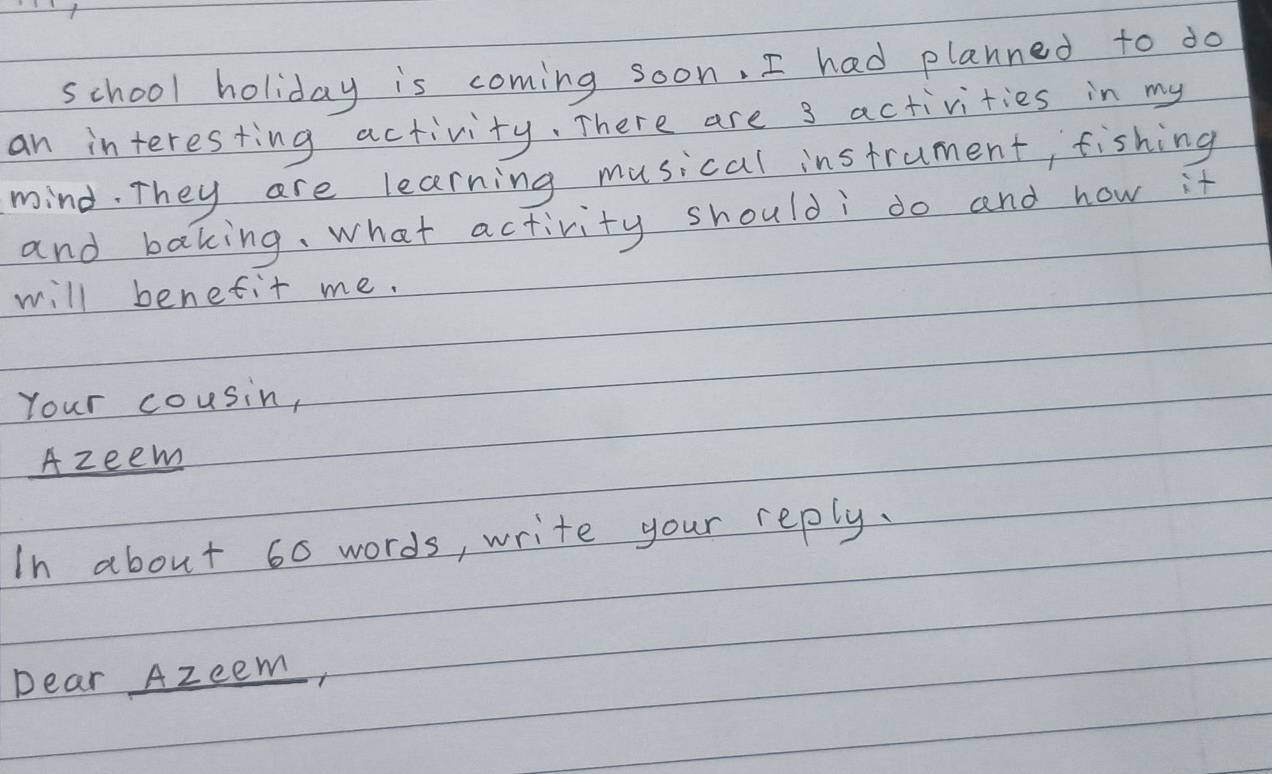 school holiday is coming soon. I had planned to do
an interesting activity. There are 3 activities in my
mind. They are learning musical instrument, fishing
and baking. What activity should i do and how it
will benefit me.
Your cousin,
Azeem
In about 60 words, write your reply.
Dear Azeem,